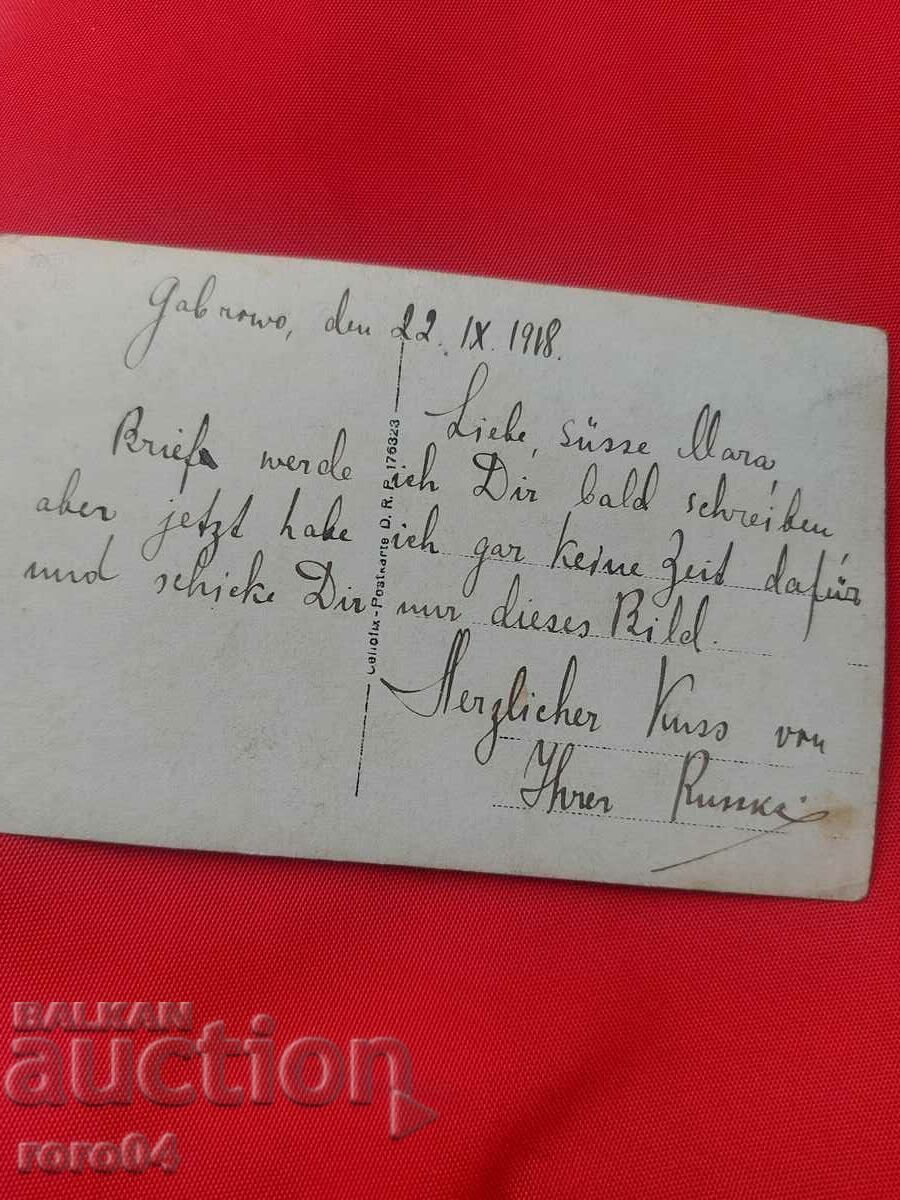 Gabrowo, den 22. IX. 1918.
Liebe, süsse Mara,
Brief werde ich Dir bald schreiben,
aber jetzt habe ich gar keine Zeit dafür
und schicke Dir nur dieses Bild.
Herzlicher Kuss von
Ihrer Russka
Cellofix-Postkarte D. R. P. 176323
BALKAN
auction
roro04